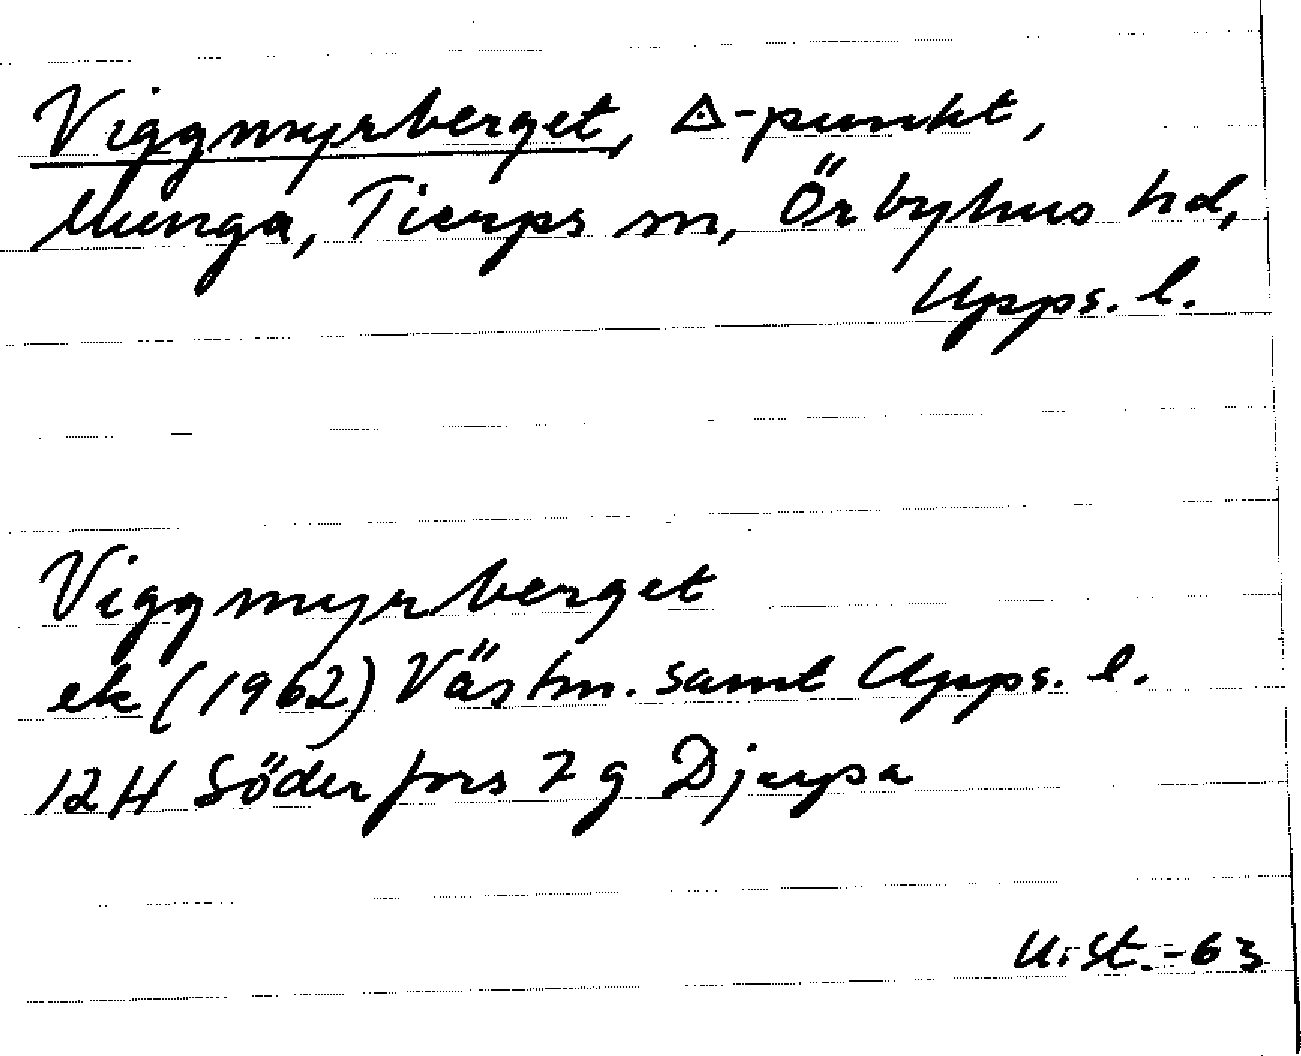 Viggmyrberget, △-punkt,
Munga, Tierps sn, Örbyhus hd,
Upps. l.
Viggmyrberget
ek (1962) Västm. samt Upps. l.
12H Söderfors 7g Djupa
U.St.-63